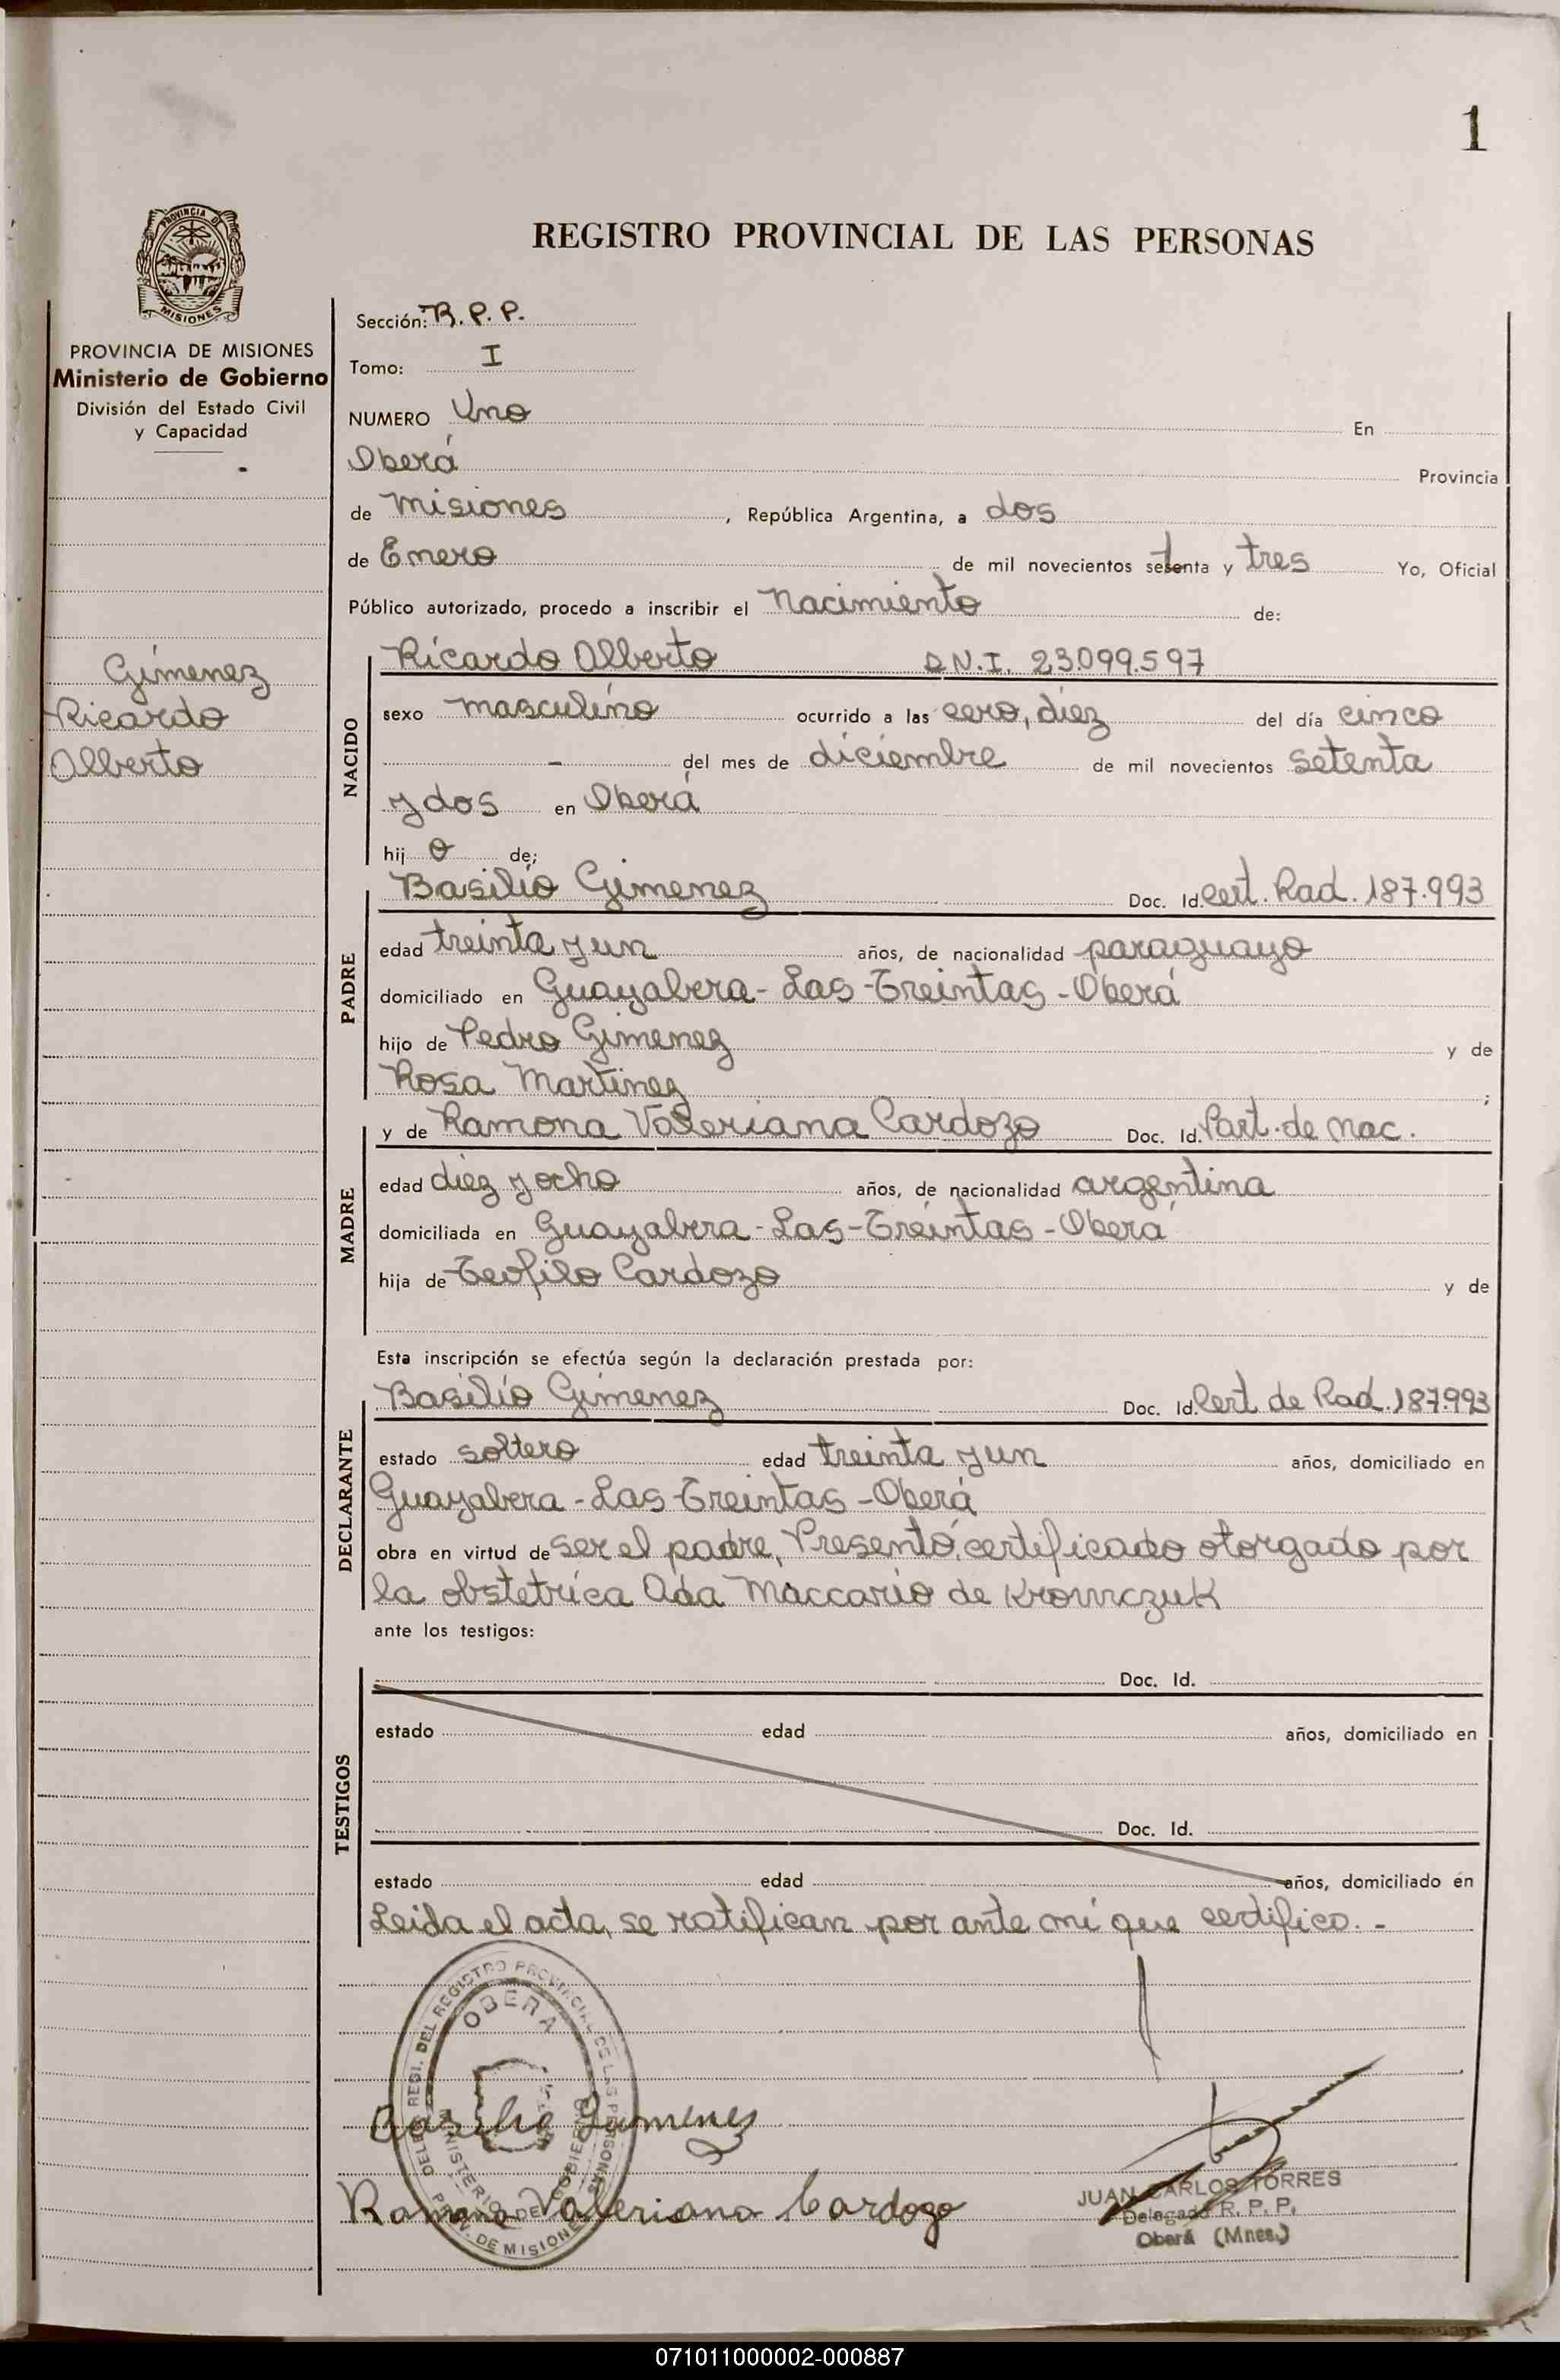 1
REGISTRO PROVINCIAL DE LAS PERSONAS
PROVINCIA DE MISIONES
Ministerio de Gobierno
División del Estado Civil
y Capacidad
Gimenez
Ricardo
Alberto
Sección: R. P. P.
Tomo: I
NUMERO Uno En
Oberá Provincia
de Misiones, República Argentina, a dos
de Enero de mil novecientos setenta y tres Yo, Oficial
Público autorizado, procedo a inscribir el Nacimiento de:
NACIDO
Ricardo Alberto D.N.I. 23.099.597
sexo masculino ocurrido a las cero, diez del día cinco
- del mes de diciembre de mil novecientos setenta
y dos en Oberá
hijo de;
PADRE
Basilio Gimenez Doc. Id. Cert. Rad. 187.993
edad treinta y un años, de nacionalidad paraguayo
domiciliado en Guayabera - Las - Treintas - Oberá
hijo de Pedro Gimenez y de
Rosa Martinez ;
MADRE
y de Ramona Valeriana Cardozo Doc. Id. Part. de Nac.
edad diez y ocho años, de nacionalidad argentina
domiciliada en Guayabera - Las - Treintas - Oberá
hija de Teofilo Cardozo y de
Esta inscripción se efectúa según la declaración prestada por:
DECLARANTE
Basilio Gimenez Doc. Id. Cert de Rad. 187.993
estado soltero edad treinta y un años, domiciliado en
Guayabera - Las - Treintas - Oberá
obra en virtud de ser el padre, Presentó certificado otorgado por
la obstetrica Ada Maccario de
ante los testigos:
TESTIGOS
Doc. Id.
estado edad años, domiciliado en
Doc. Id.
estado edad años, domiciliado en
Leida el acta, se ratifican por ante mi que certifico. -
DELEG. REGI. DEL REGISTRO PROVINCIAL DE LAS PERSONAS
OBERA
MINISTERIO DE GOBIERNO
PROV. DE MISIONES
Basilio Jimenes
Ramona Valeriana Cardozo
JUAN CARLOS TORRES
Delegado R. P. P.
Oberá (Mnes.)
071011000002-000887